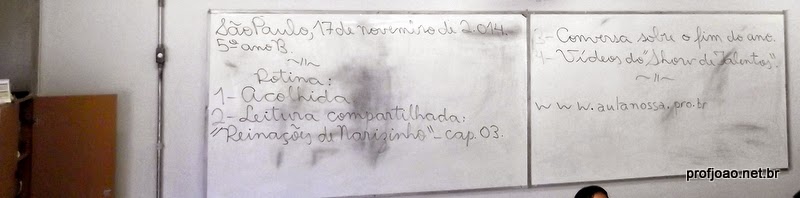 São Paulo, 17 de novembro de 2.014.
5º ano B.
~//~
Rotina:
1- Acolhida
2- Leitura compartilhada:
"Reinações de Narizinho" - cap. 03.
3- Conversa sobre o fim do ano.
4- Vídeos do "Show de Talentos".
~//~
www.aulanossa.pro.br
profjoao.net.br